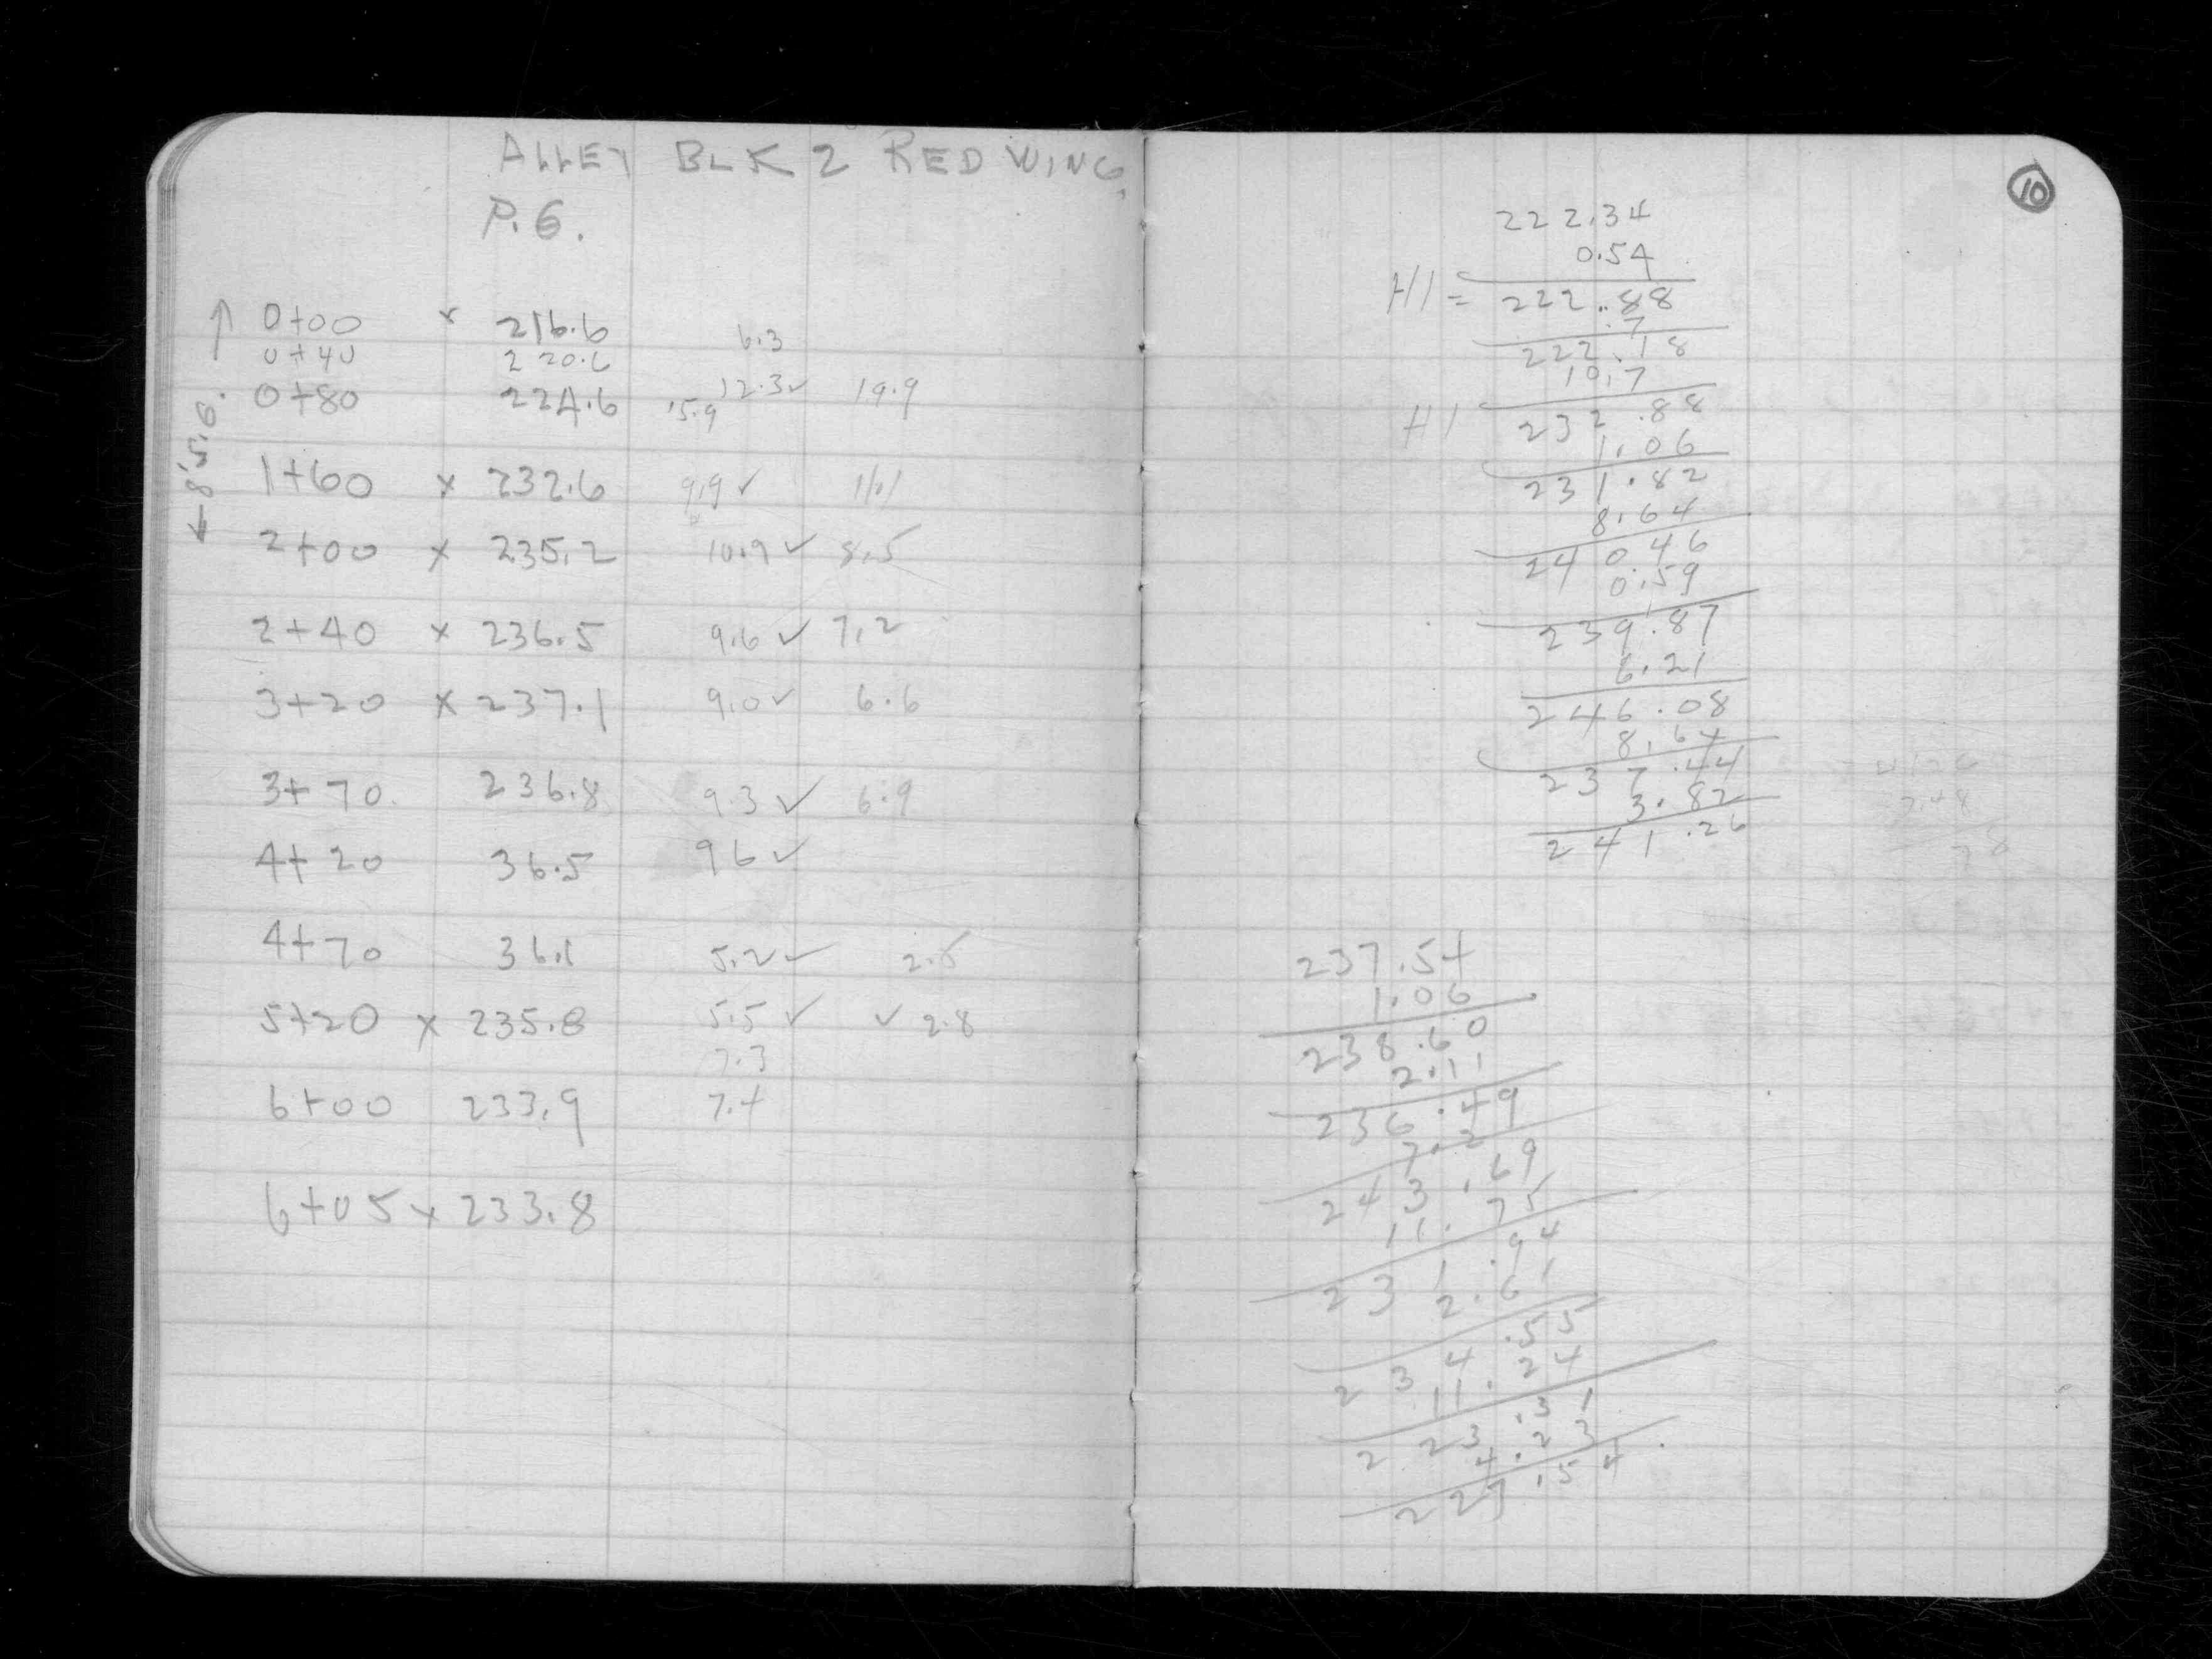 ALLEY BLK 2 RED WING.
P.G.
0+00 x 216.6 6.3
0+40 220.6
0+80 224.6 15.9 12.3✓ 19.9
1+60 x 232.6 9.9✓ 11.1
2+00 x 235.2 10.9✓ 8.5
2+40 x 236.5 9.6✓ 7.2
3+20 x 237.1 9.0✓ 6.6
3+70 236.8 9.3✓ 6.9
4+20 36.5 96✓
4+70 36.1 5.2✓ 2.5
5+20 x 235.8 5.5✓ ✓2.8
7.3
6+00 233.9 7.4
6+05 x 233.8
10
222.34
0.54
HI = 222.88
.7
222.18
10.7
HI 232.88
1.06
231.82
8.64
240.46
0.59
239.87
6.21
246.08
8.64
237.44
3.82
241.26
237.54
1.06
238.60
2.11
236.49
7.2
243.69
11.75
231.94
2.61
234.55
11.24
223.31
4.23
227.54